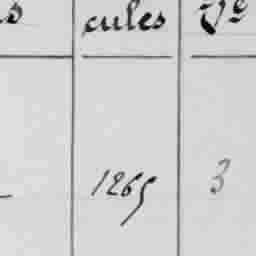 cules
1265 3